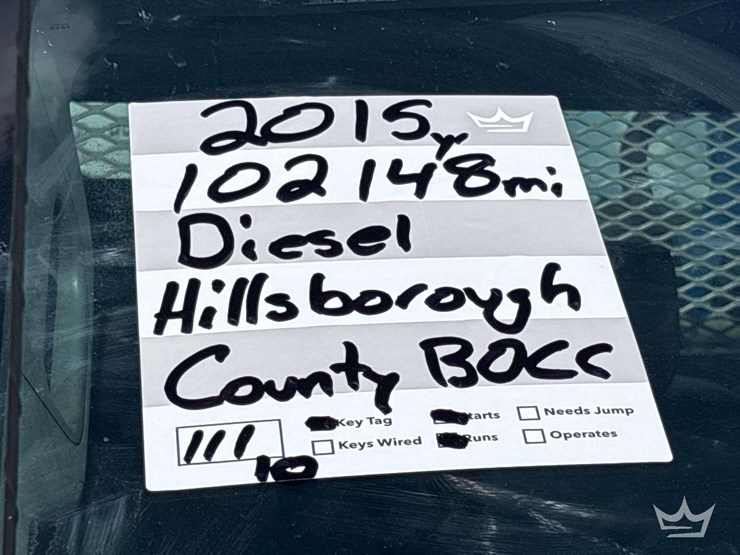 2015y
102148mi
Diesel
Hillsborough
County BOCC
Key Tag Starts Needs Jump
Keys Wired Runs Operates
111
10